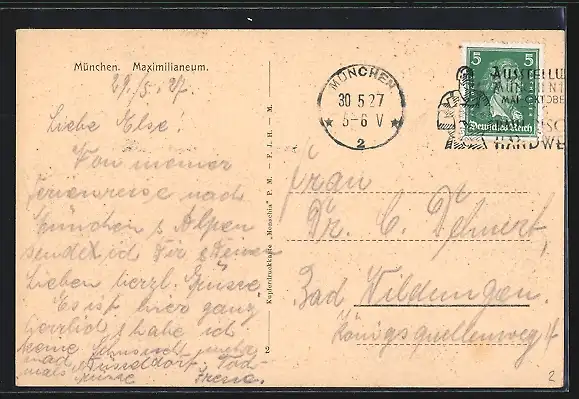 München. Maximilianeum.
29./5. 27.
Liebe Else!
Von meiner
Ferienreise nach
München & Alpen
sendet ich Dir & Deinen
Lieben herzl. Grüsse
Es ist hier ganz
herrlich & habe ich
keine Sehnsucht mehr
nach Düsseldorf.
mals Grüsse Irene.
Kupferdruckkarte „Monachia" P. M. - F. J. H. - M.
2
MÜNCHEN
30 5.27
5-6 V
2
5 5
Deutsches Reich
AUSSTELLU
MÜNCHEN
MAI-OKTOBE
HANDWE
Frau
Dr. C. Dehnert,
Bad Wildungen.
Königsquellenweg 4
2